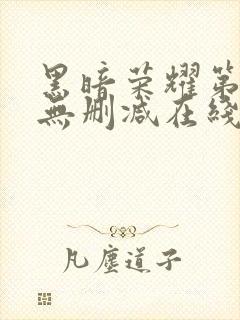 黑暗荣耀第
無删減在綫
凡塵道子